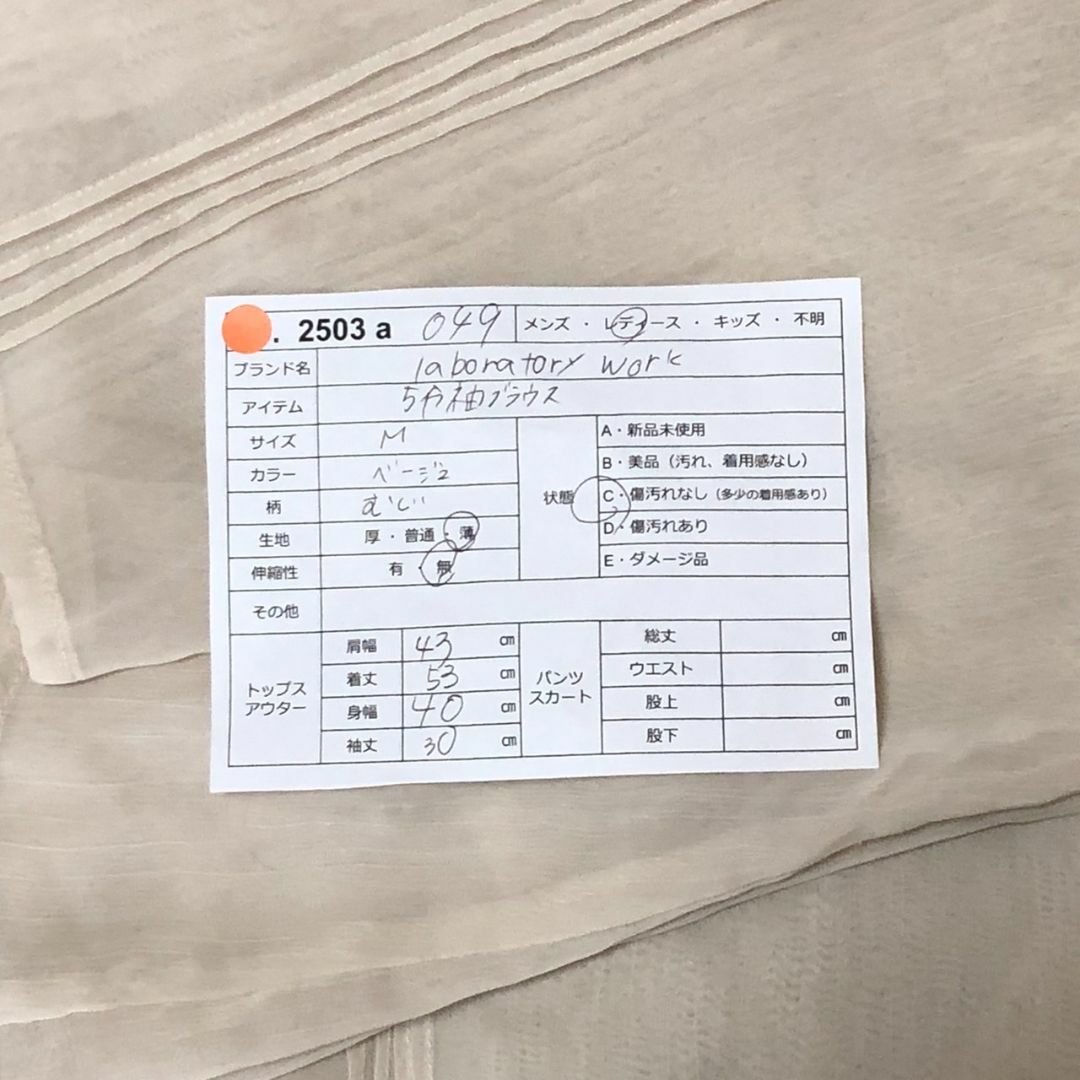 . 2503 a 049 メンズ ・ レディース ・ キッズ ・ 不明
ブランド名 laboratory work
アイテム 5分袖ブラウス
サイズ M
カラー ベージュ
柄 むじ
生地 厚 ・ 普通 ・ 薄
伸縮性 有 ・ 無
状態
A・新品未使用
B・美品（汚れ、着用感なし）
C・傷汚れなし（多少の着用感あり）
D・傷汚れあり
E・ダメージ品
その他
トップス
アウター
肩幅 43 cm
着丈 53 cm
身幅 40 cm
袖丈 30 cm
パンツ
スカート
総丈 cm
ウエスト cm
股上 cm
股下 cm